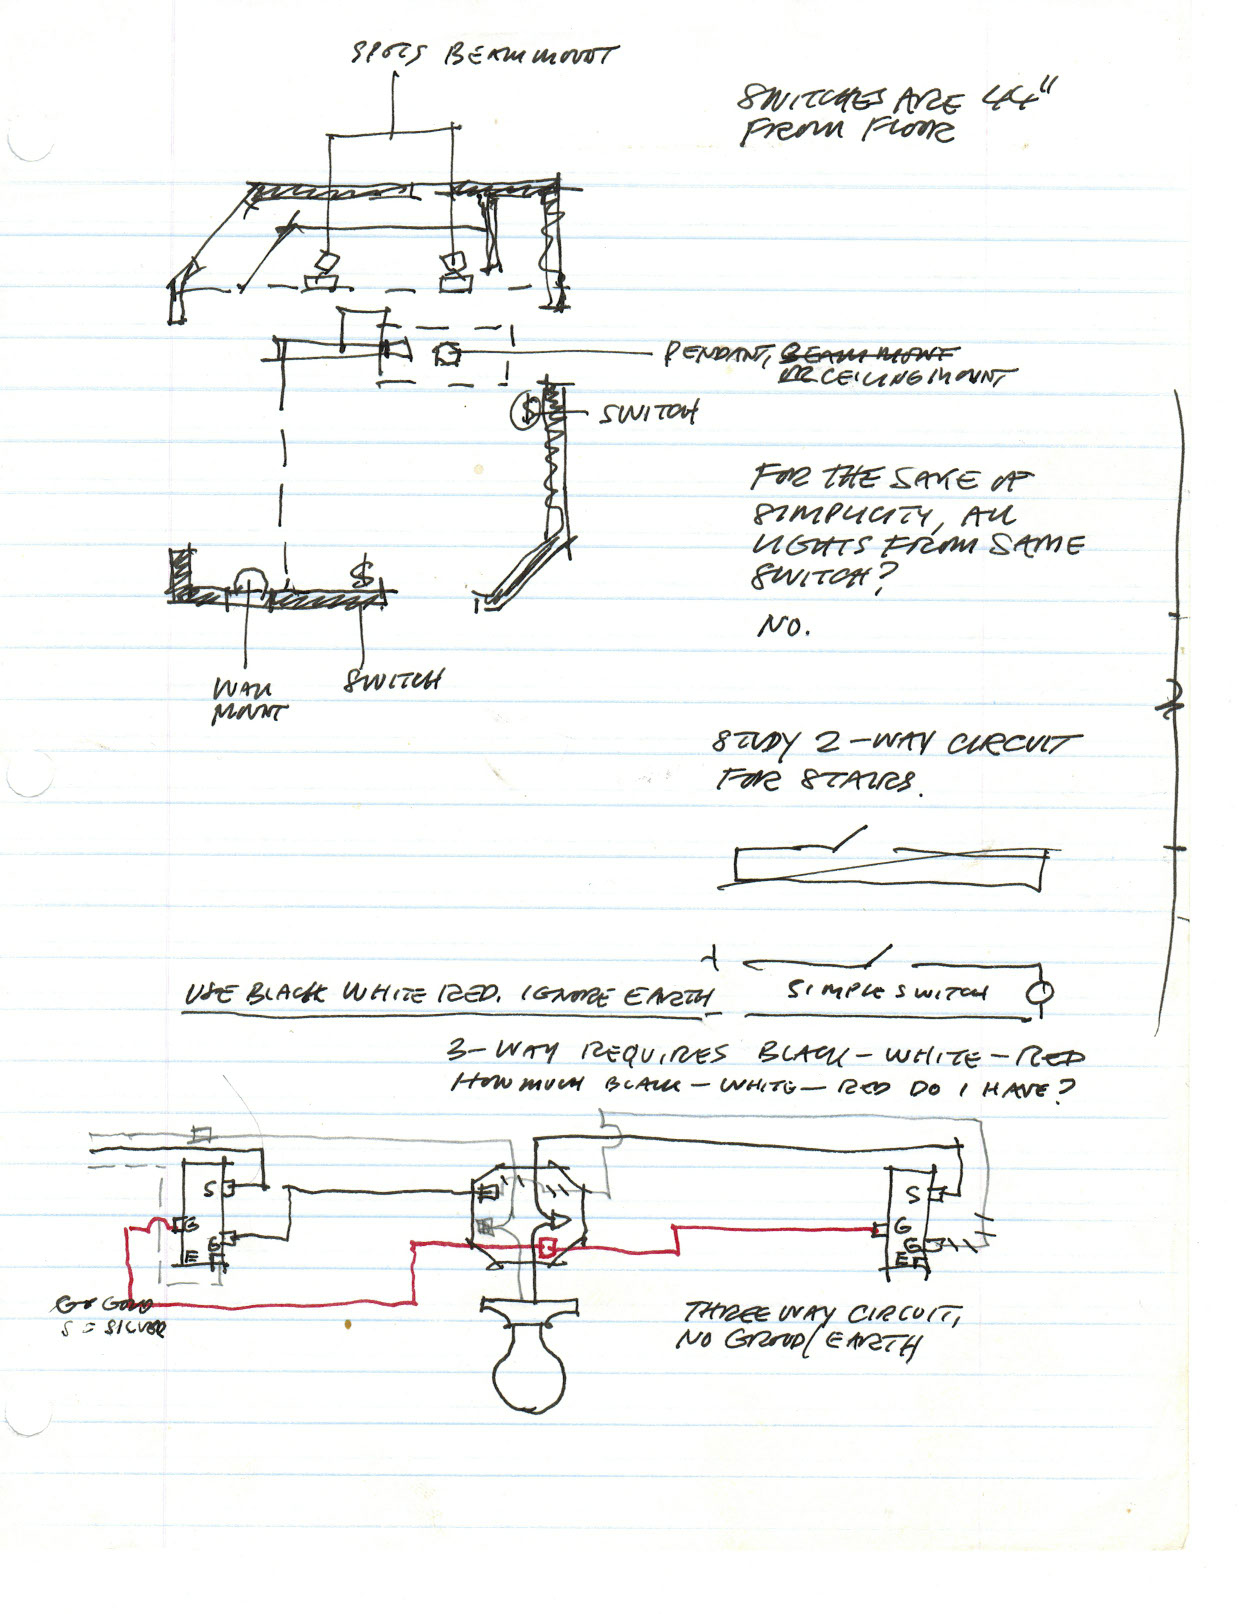 SPOTS BEAM MOUNT
SWITCHES ARE 44"
FROM FLOOR
PENDANT, BEAM MOUNT
OR CEILING MOUNT
$ SWITCH
FOR THE SAKE OF
SIMPLICITY, ALL
LIGHTS FROM SAME
SWITCH?
NO.
$
WALL
MOUNT
SWITCH
STUDY 2-WAY CIRCUIT
FOR STAIRS.
USE BLACK WHITE RED. IGNORE EARTH
+
SIMPLE SWITCH
-
3-WAY REQUIRES BLACK-WHITE-RED
HOW MUCH BLACK-WHITE-RED DO I HAVE?
S
G
G
E
S
G
G
E
G = GOLD
S = SILVER
THREE WAY CIRCUIT,
NO GROUD/EARTH